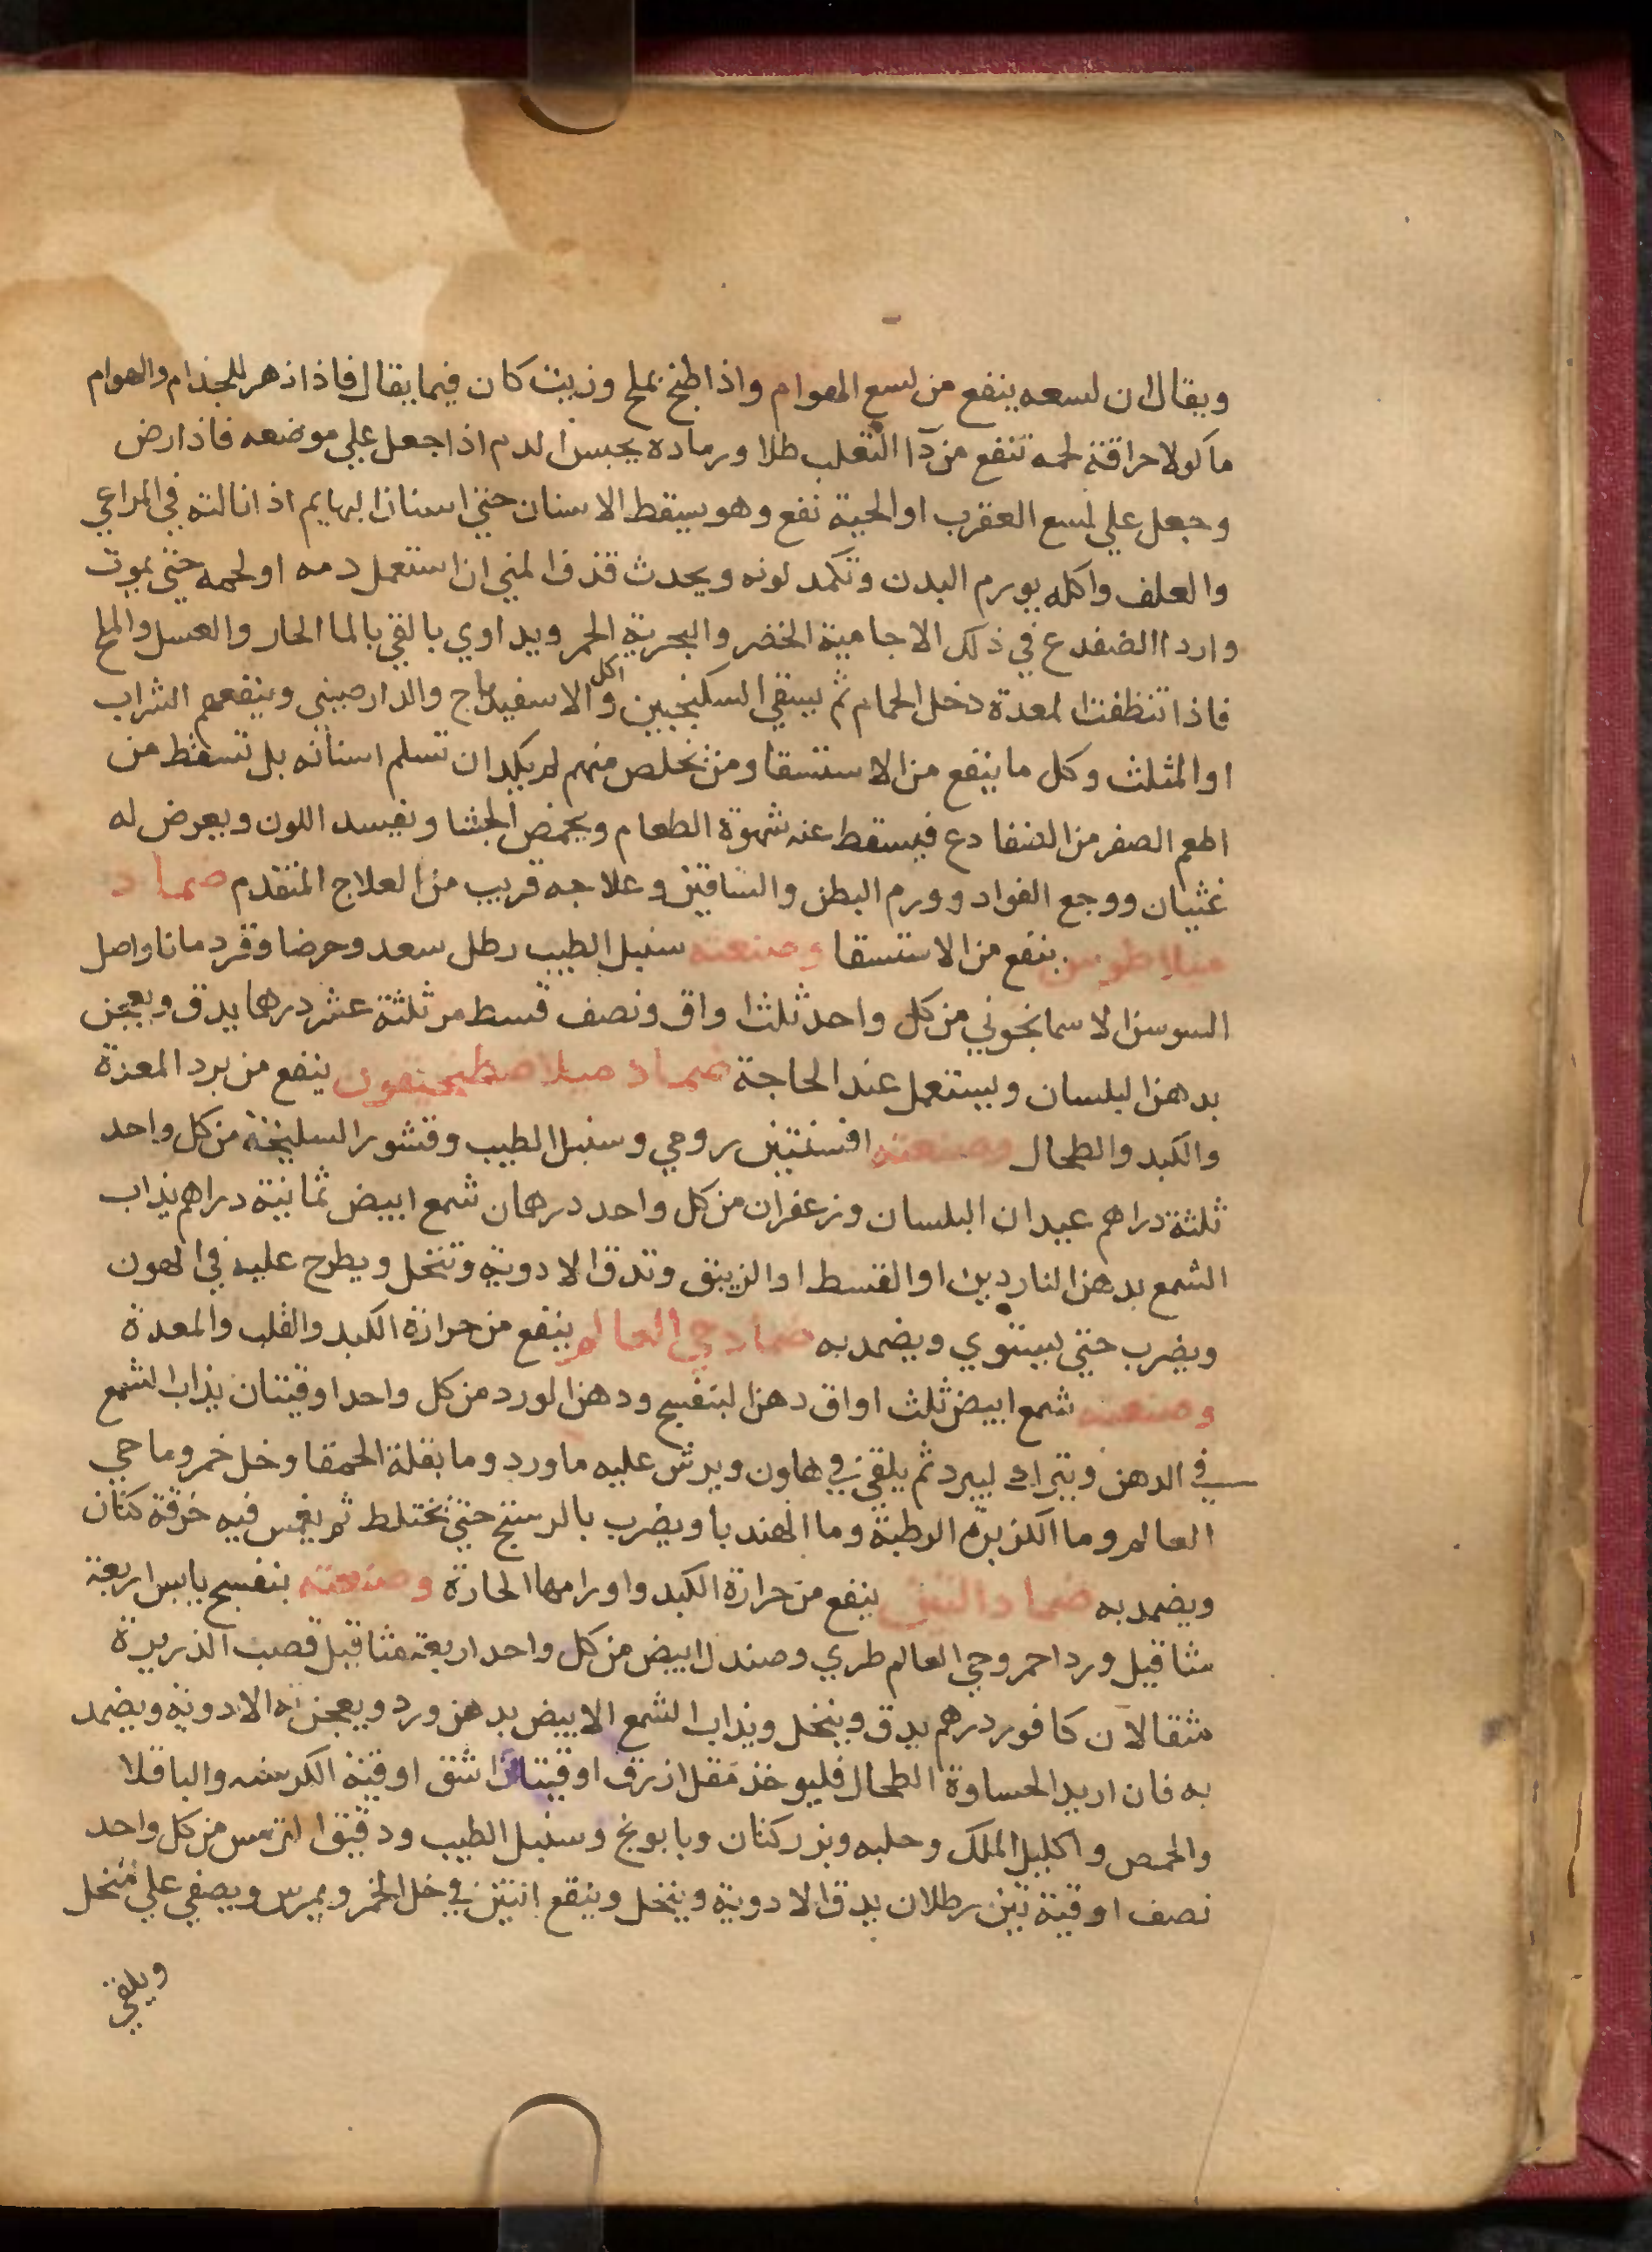 ويقال ان لسعه ينفع من لسع الهوام واذا طبخ بملح وزيت كان فيما يقال فاذا ذهر للجذام والهوام
ماكولا حراقة لحمه تنفع من دآ الثعلب طلا ورماده يحبس الدم اذا جعل علي موضعه فاذا رض
وجعل علي لسع العقرب او الحية نفع وهو يسقط الاسنان حتي اسنان البهايم اذا نالته في المراعي
والعلف واكله يورم البدن وتكمد لونه ويحدث قذف المني ان استعمل دمه او لحمه حتي يموت
واردا الضفدع في ذلك الاجامية الخضر والبحرية الحمر ويداوي بالقي بالما الحار والعسل والملح
فاذا تنظفت المعدة دخل الحمام ثم يسقي السكنجبين واكل الاسفيدباج والدارصيني وينفعهم الشراب
او المثلث وكل ما ينفع من الاستسقا ومن تخلص منهم لم يكد ان تسلم اسنانه بل تسقط من
اطعم الصفر من الضفادع فيسقط عنه شهوة الطعام ويحمض الجشا ويفسد اللون ويعرض له
غثيان ووجع الفواد وورم البطن والساقين وعلاجه قريب من العلاج المتقدم ضماد
ميلاطوس ينفع من الاستسقا وصنعته سنبل الطيب رطل سعد وحرضا وقردمانا واصل
السوسن الاسمانجوني من كل واحد ثلث اواق ونصف قسط مر ثلثة عشر درهما يدق ويعجن
بدهن البلسان ويستعمل عند الحاجة ضماد ينفع من برد المعدة
والكبد والطحال وصنعته افسنتين رومي وسنبل الطيب وقشور السليخة من كل واحد
ثلثة دراهم عيدان البلسان وزعفران من كل واحد درهمان شمع ابيض ثمانية دراهم يذاب
الشمع بدهن الناردين او القسط او الزيبق وتدق الادوية وتنخل ويطرح عليه في الهون
ويضرب حتي يستوي ويضمد به ضماد حي العالم ينفع من حرارة الكبد والقلب والمعدة
وصنعته شمع ابيض ثلث اواق دهن البنفسج ودهن الورد من كل واحد اوقيتان يذاب الشمع
في الدهن ويترك ليبرد ثم يلقي في هاون ويرش عليه ماورد وما بقلة الحمقا وخل خمر وما حي
العالم وما الكزبرة الرطبة وما الهندبا ويضرب بالدستج حتي تختلط ثم يغمس فيه خرقة كتان
ويضمد به ضماد التين ينفع من حرارة الكبد واورامها الحارة وصنعته بنفسج يابس اربعة
مثاقيل ورد احمر وحي العالم طري وصندل ابيض من كل واحد اربعة مثاقيل قصب الذريرة
مثقالان كافور درهم يدق وينخل ويذاب الشمع الابيض بدهن ورد ويعجن به الادوية ويضمد
به فان اريد الحساوة الطحال فليوخذ مقل ازرق اوقيتان اشق اوقية الكرسنه والباقلا
والحمص واكليل الملك وحلبه وبزر كتان وبابونج وسنبل الطيب ودقيق الترمس من كل واحد
نصف اوقية تين رطلان يدق الادوية وينخل وينقع التين في خل الخمر ويمرس ويصفي علي منخل
ويلقي